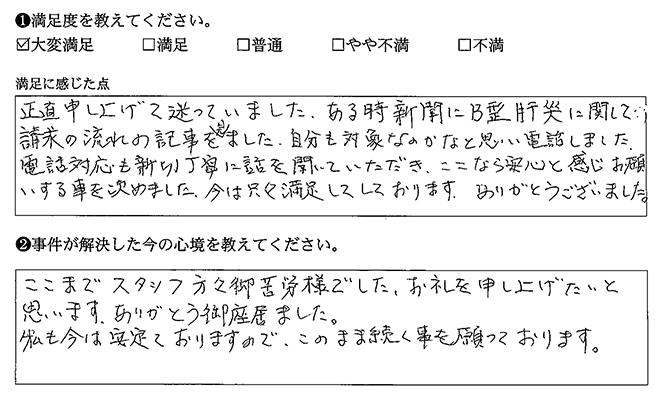 ❶満足度を教えてください。
☑大変満足 □満足 □普通 □やや不満 □不満
満足に感じた点
正直申し上げて迷っていました、ある時新聞にB型肝炎に関して
請求の流れの記事を読みました、自分も対象なのかなと思い電話しました、
電話対応も親切丁寧に話を聞いていただき、ここなら安心と感じお願
いする事を決めました、今は只々満足してしております、ありがとうございました。
❷事件が解決した今の心境を教えてください。
ここまでスタッフ方々御苦労様でした、お礼を申し上げたいと
思います、ありがとう御座居ました。
私も今は安定ておりますので、このまま続く事を願っております。